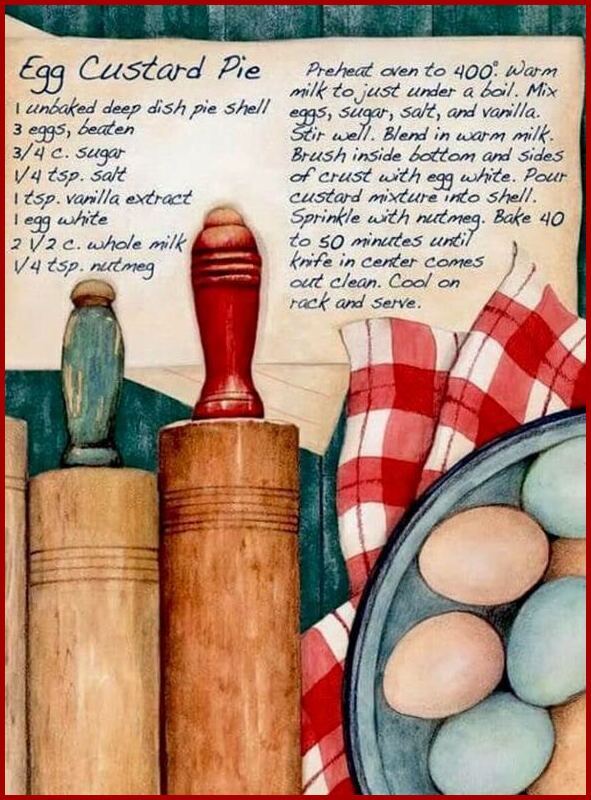 Egg Custard Pie
1 unbaked deep dish pie shell
3 eggs, beaten
3/4 c. sugar
1/4 tsp. salt
1 tsp. vanilla extract
1 egg white
2 1/2 c. whole milk
1/4 tsp. nutmeg
Preheat oven to 400°. Warm
milk to just under a boil. Mix
eggs, sugar, salt, and vanilla.
Stir well. Blend in warm milk.
Brush inside bottom and sides
of crust with egg white. Pour
custard mixture into shell.
Sprinkle with nutmeg. Bake 40
to 50 minutes until
knife in center comes
out clean. Cool on
rack and serve.